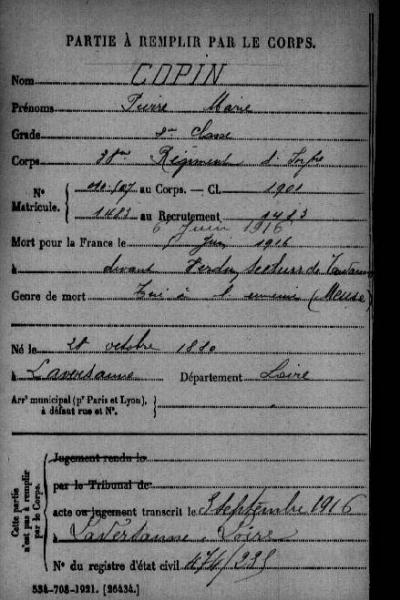 PARTIE À REMPLIR PAR LE CORPS.
Nom COPIN
Prénoms Pierre Marie
Grade 2me Classe
Corps 38me Régiment d'Infrie
N° Matricule. 010.507 au Corps. — Cl. 1901
1483 au Recrutement 1483
6 Juin 1916
Mort pour la France le Juin 1916
à devant Verdun, Secteurs de Tavannes
Genre de mort Tué à l'ennemi (Meuse)
Né le 28 octobre 1880
à Laversanne Département Loire
Arrt municipal (pr Paris et Lyon), à défaut rue et N°.
Cette partie n'est pas à remplir par le Corps.
Jugement rendu le
par le Tribunal de
acte ou jugement transcrit le 3 Septembre 1916
à Laversanne, Loire
N° du registre d'état civil 474/235
534-708-1921. [26434.]